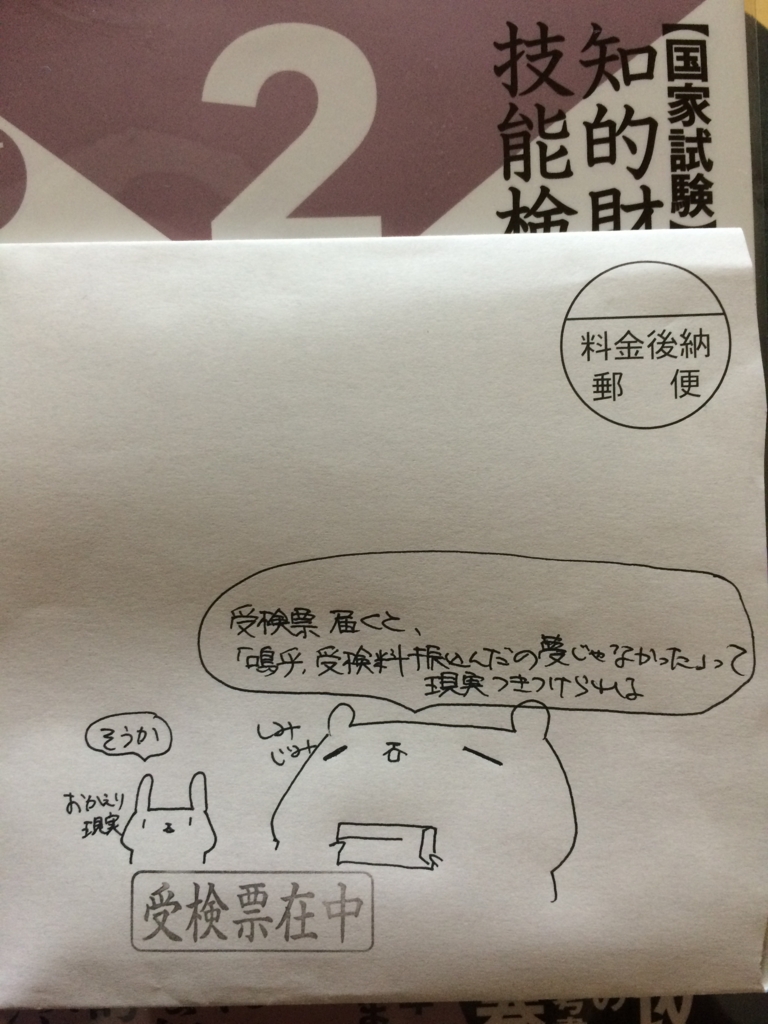 【国家試験】
知的財
技能検
2
料金後納
郵便
受検票届くと、
「嗚乎、受検料振込んだの夢じゃなかった」って
現実つきつけられるよ
しみ
じみ
そうか
おかえり
現実
受検票在中